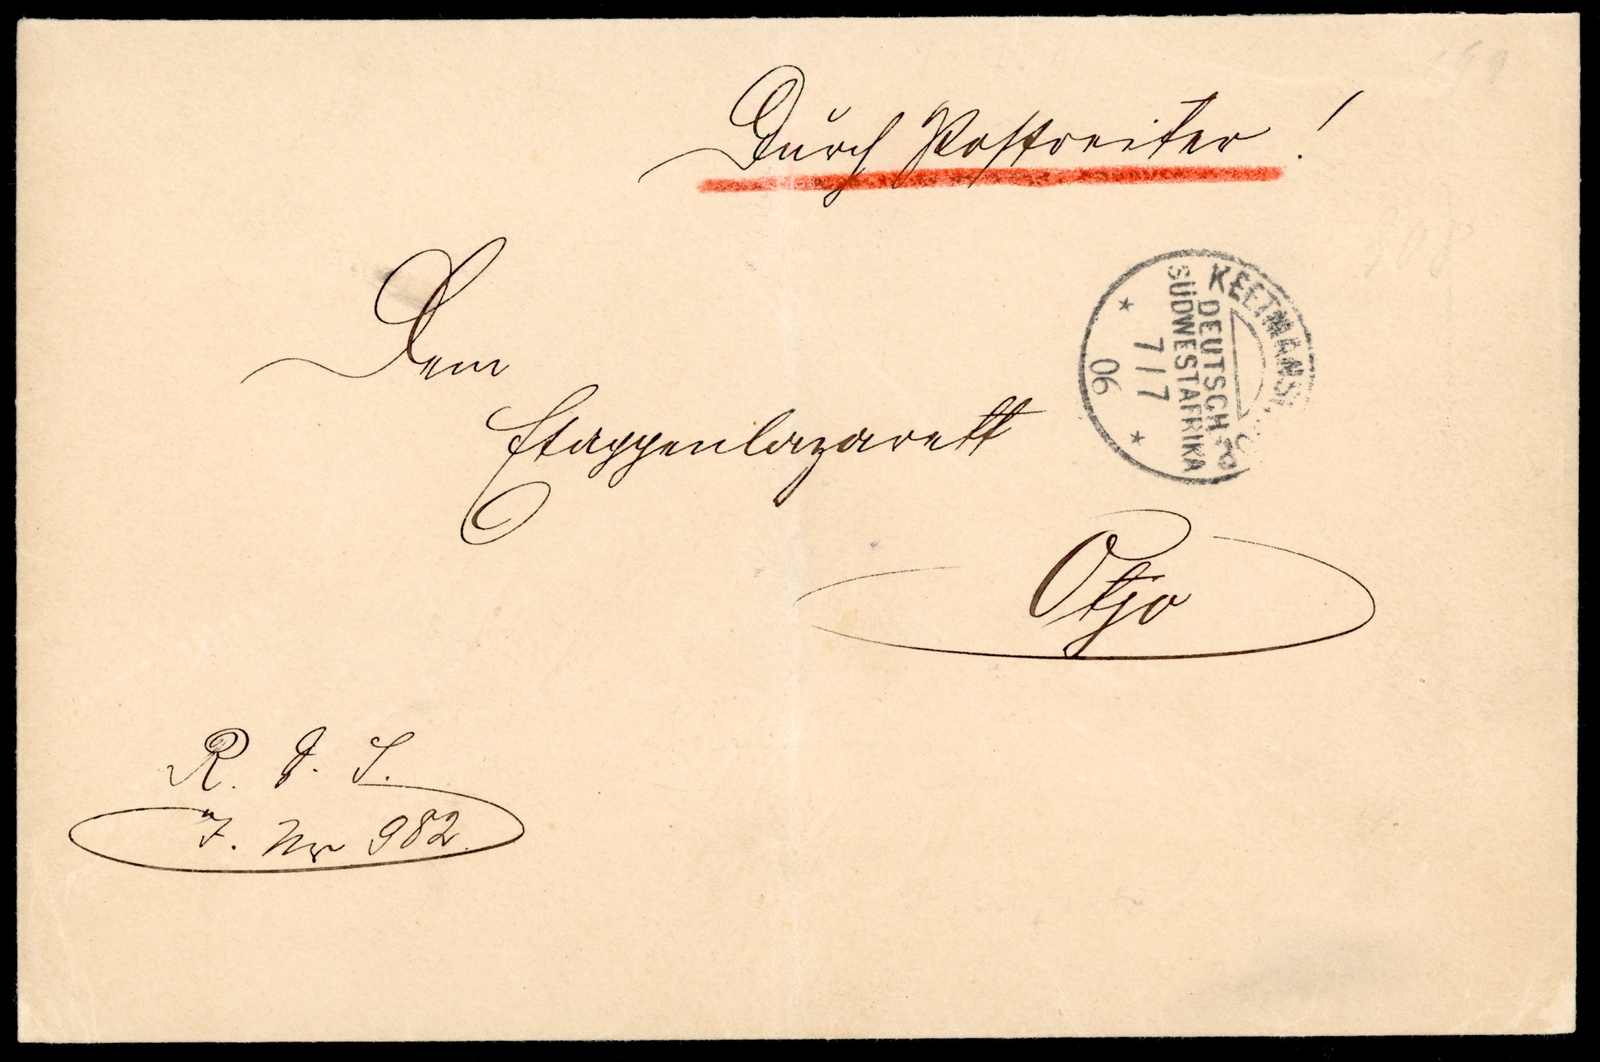 Durch Postreiter!
KEETMANS
DEUTSCH-
SÜDWESTAFRIKA
7/7
06
Dem
Etappenlazarett
Otjo
R. d. S.
J. Nr 982.